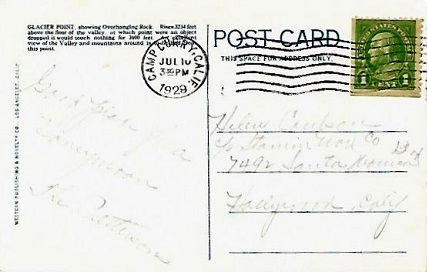 GLACIER POINT, showing Overhanging Rock. Rises 3234 feet
above the floor of the valley, at which point were an object
dropped it would touch nothing for 3000 feet. An excellent
view of the Valley and mountains around is
this point.
POST CARD
THIS SPACE FOR ADDRESS ONLY.
CAMP CURRY, CALIF.
JUL 10
3 PM
1929
1 CENT 1
WESTERN PUBLISHING & NOVELTY CO. LOS ANGELES, CALIF.
Good place for a
Honeymoon
The
Helene
c/o Co
7492 Santa Monica Blvd
Hollywood, Calif